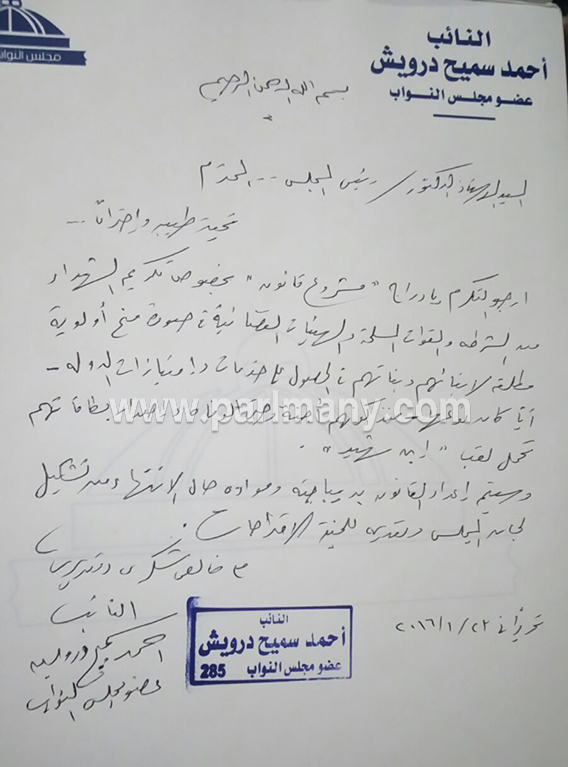 مجلس النواب
النائب
أحمد سميح درويش
عضو مجلس النواب
بسم الله الرحمن الرحيم
السيد الاستاذ الدكتور / رئيس المجلس -- المحترم
تحية طيبة واحترامًا --
ارجو التكرم بإدراج " مشروع قانون " بخصوص تكريم الشهداء
من الشرطه والقوات المسلحة والهيئات القضائية في صورة منح أولوية
مطلقة لابنائهم وبناتهم في الحصول على خدمات وامتيازات الدوله -
أيًا كان نوعها
تحمل لقب " ابن شهيد " .
وسيتم إعداد القانون بديباجته ومواده حال الانتهاء من تشكيل
لجان المجلس وتقديمه للجنة الاقتراحات .
مع خالص شكري وتقديري
النائب
احمد سميح درويش
عضو مجلس النواب
تحريرًا في ٢٠١٦/١/٢٣
النائب
أحمد سميح درويش
عضو مجلس النواب
285
www.parlmany.com